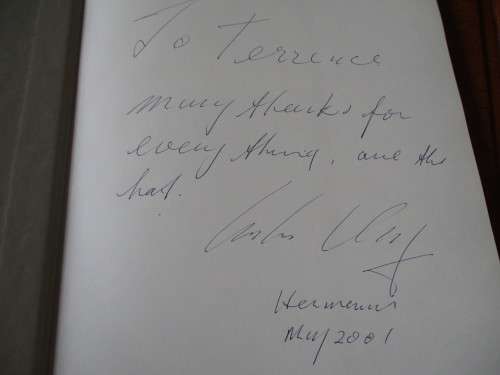 To Terrence
many thanks for
every thing, and the
hat.
Hermanus
May 2001